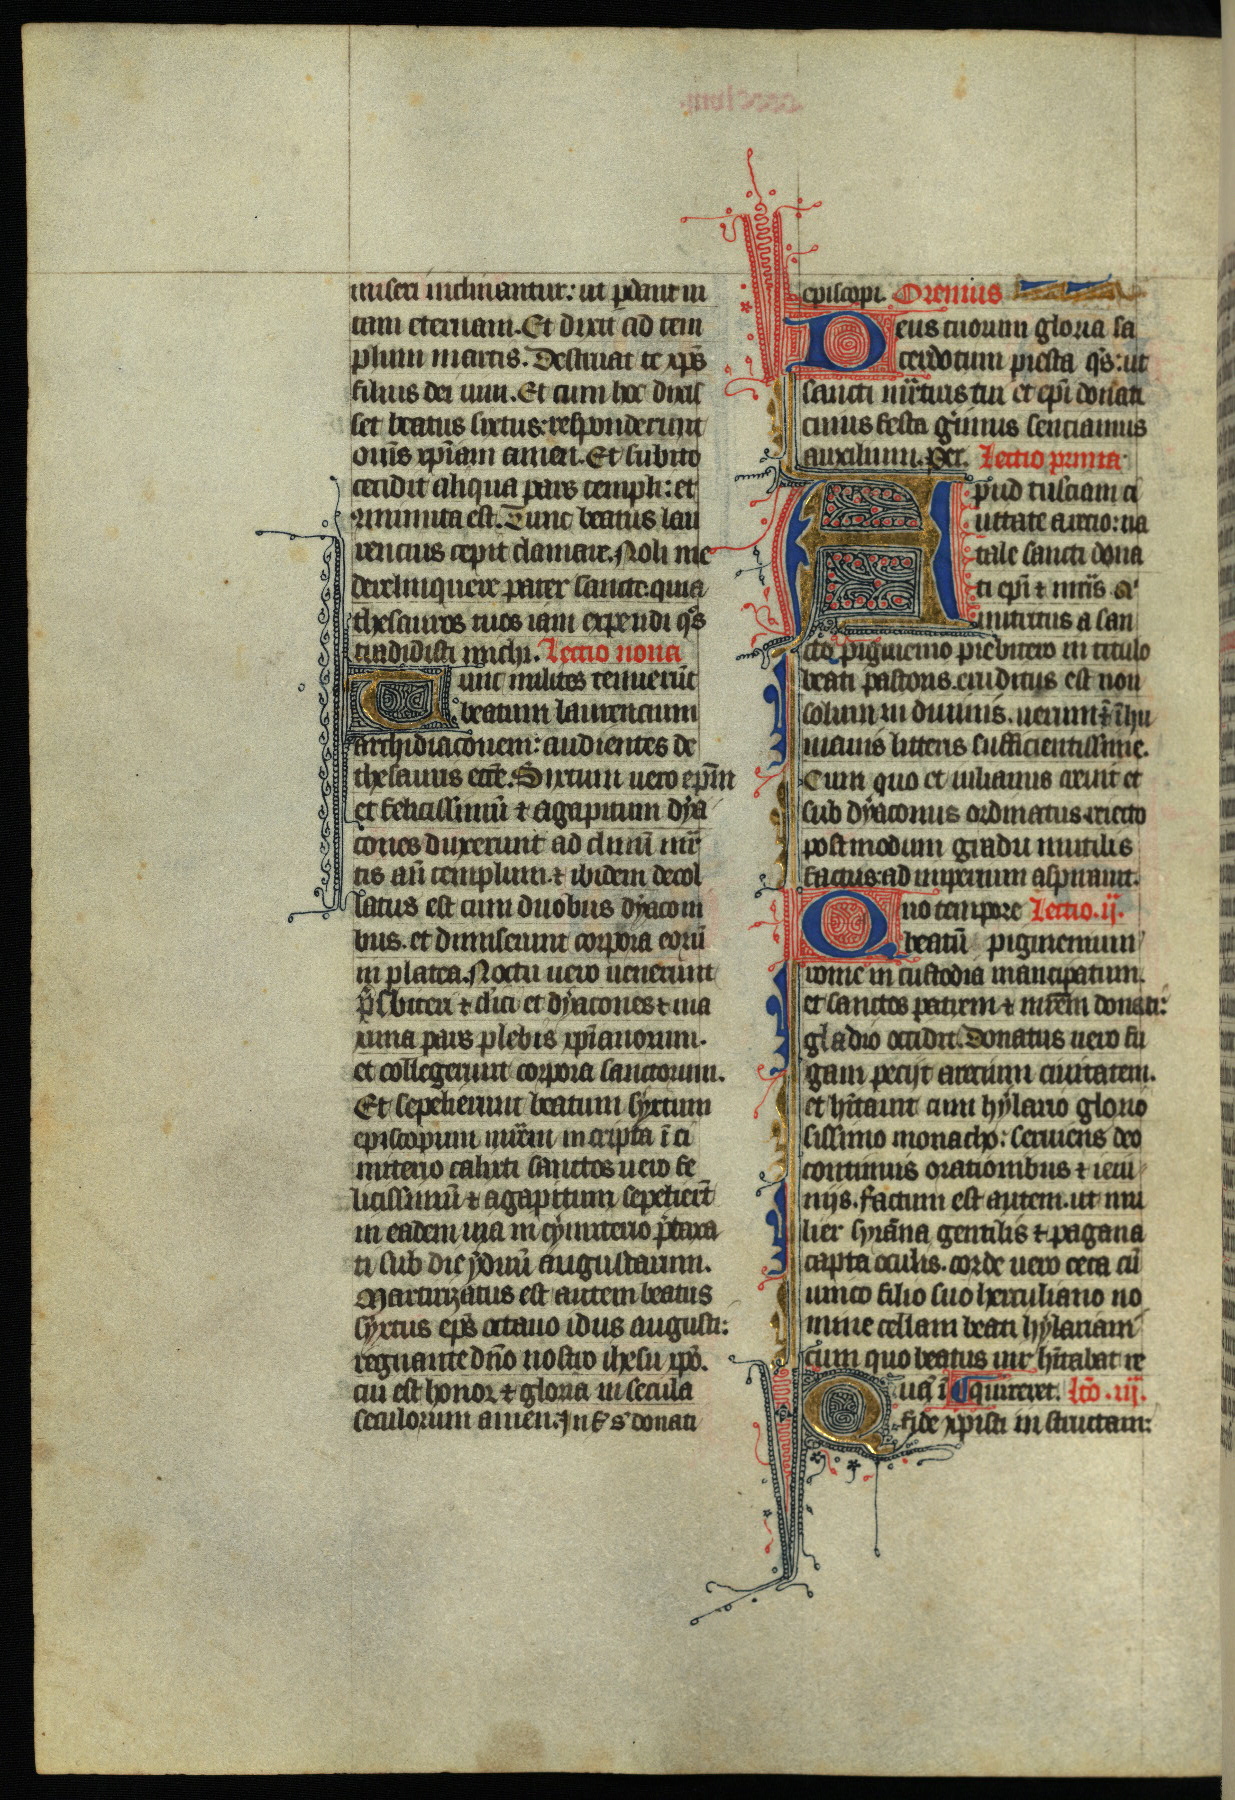 miseri inclinantur: ut pdant ui
tam eternam. Et dixit ad tem
plum martis. Destruat te xp̄s
filius dei uiui. Et cum hoc dixis
set beatus sixtus: responderunt
om̄s xp̄iani amen. Et subito
cecidit aliqua pars templi: et
minuita est. Tunc beatus lau
rencius cepit clamare. Noli me
derelinquere pater sancte. quia
thesauros tuos iam expendi q̄s
tradidisti michi. Lectio nona
Tunc milites tenuerūt
beatum laurencium
archidiaconem: audientes de
thesauris ecc̄e. Sixtum uero ep̄m
et felicissimū ⁊ agapitum dya
cones duxerunt ad cliuū mr̄
tis an̄ templum. ⁊ ibidem decol
latus est cum duobus dyaconi
bus. et dimiserunt corpora eorū
in platea. Noctu uero uenerunt
p̄sbiteri ⁊ cl̓ici et dyacones ⁊ ma
xima pars plebis xp̄ianorum.
et collegerunt corpora sanctorum.
Et sepelierunt beatum syxtum
episcopum mr̄em in cripta ī ci
miterio calixti sanctos uero fe
licissimū ⁊ agapitum sepelierūt
in eadem uia in cymiterio p̄taxa
ti sub die ydiuū augustarum.
Martirizatus est autem beatus
syxtus ep̄s octauo idus augusti:
regnante dn̄o nostro ihesu xp̄o.
cui est honor ⁊ gloria in secula
seculorum amen. In f̓ s̓ donati
episcopi. Oremus
Deus tuorum gloria sa
cerdotum presta q̄s: ut
sancti mr̄tiris tui et ep̄i donati
cuius festa gimus senciamus
auxilium. Per. Lectio prima
Apud tusciam ci
uitate arecio: na
tale sancti dona
ti ep̄i ⁊ mr̄is
nutritus a san
cto pigmenio prebitero in titulo
beati pastoris. eruditus est non
solum in diuinis. uerum ⁊ ī hu
manis litteris sufficientissime.
Cum quo et iulianus creuit et
sub dyaconus ordinatus. eiecto
postmodum gradu inutilis
factus: ad imperium aspirauit.
Quo tempore Lectio .ij.
beatū pigmenium
rome in custodia mancipatum.
et sanctos patrem ⁊ mr̄em donati:
gladio occidit. Donatus uero fu
gam pecijt arecium ciuitatem.
et hītauit cum hylario glorio
sissimo monacho: seruiens deo
continuis orationibus ⁊ ieiu
nijs. Factum est autem. ut mu
lier syrāna gentilis ⁊ pagana
capta oculis. corde uero ceca cū
unico filio suo herculiano no
mine cellam beati hylariani
cum quo beatus uir hītabat re
Quā ī quireret. Lc̄o .iij.
fide xp̄isti in structam: